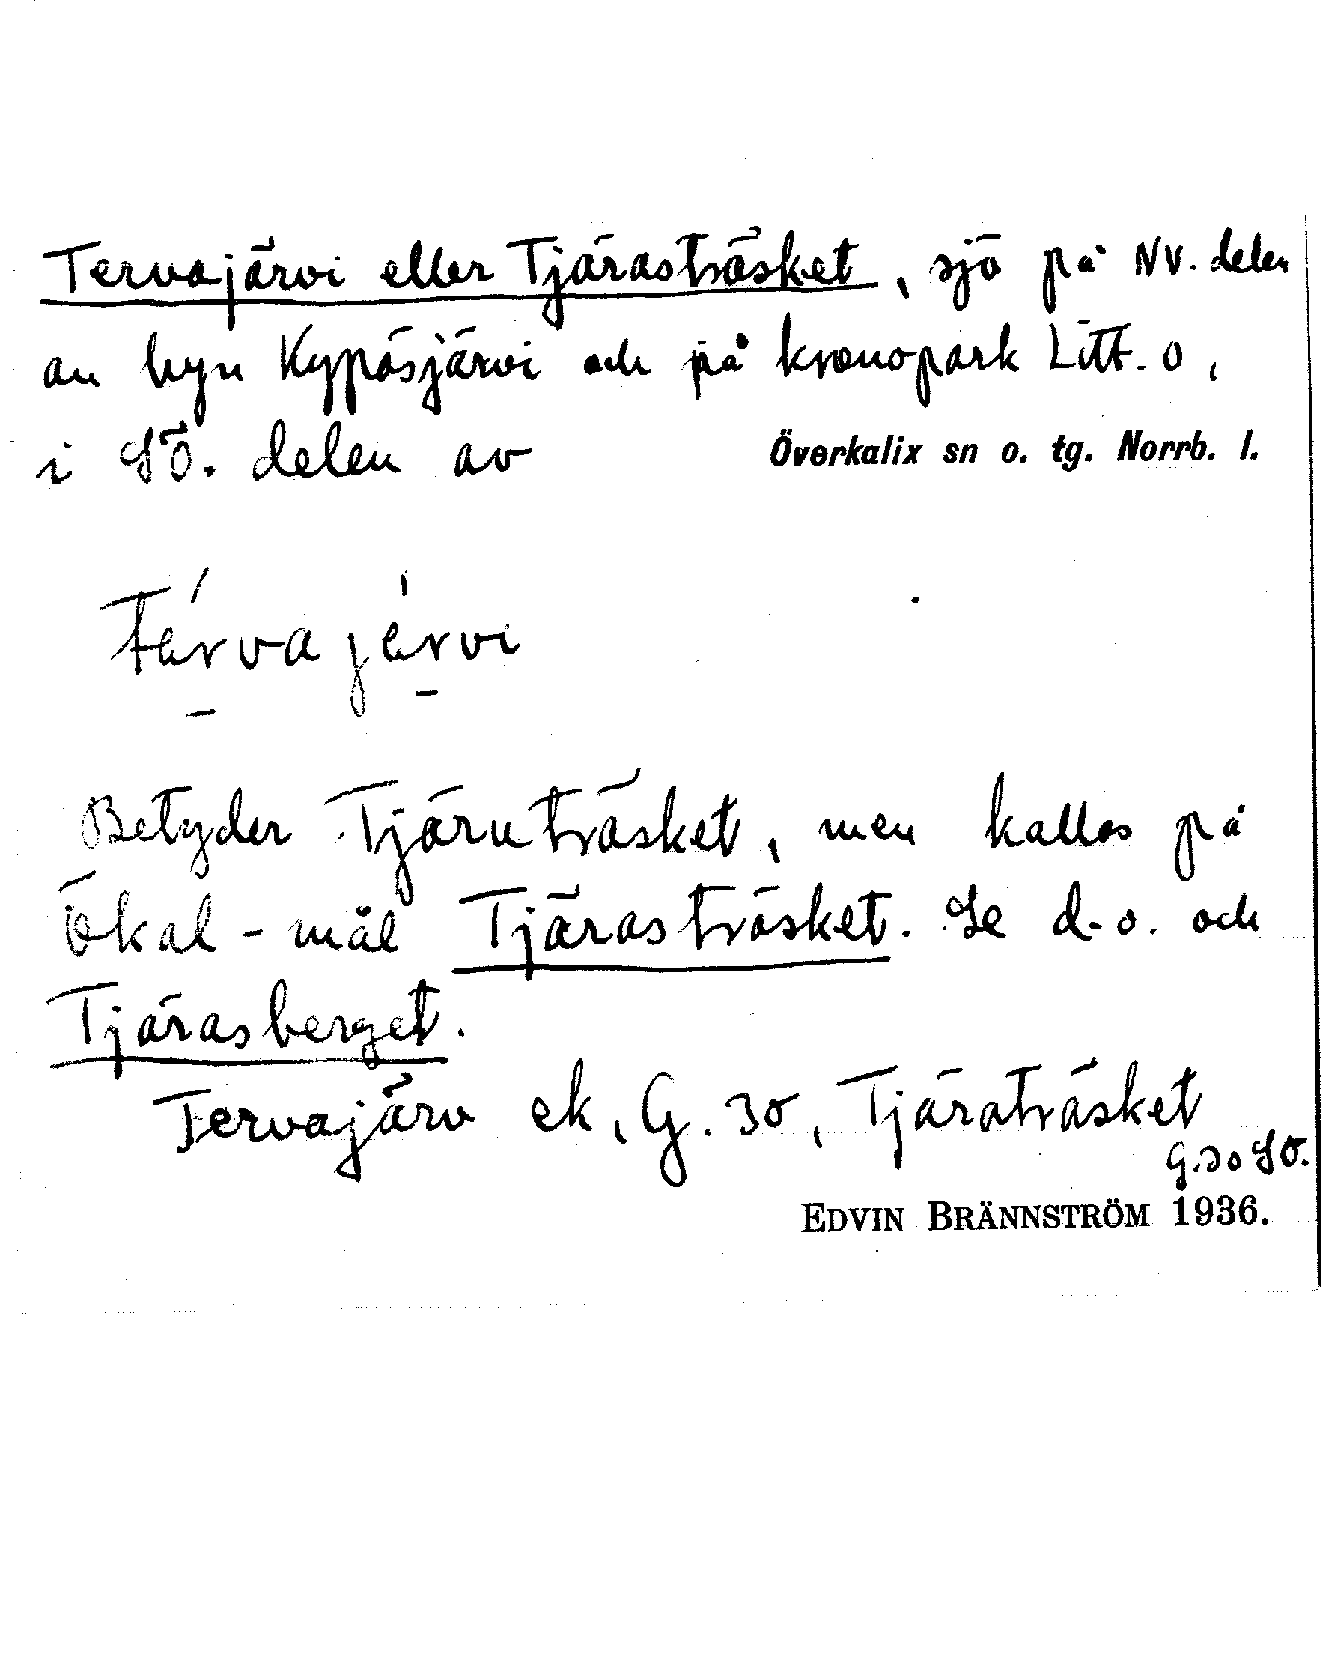 Tervajärvi eller Tjärasträsket, sjö på NV. delen
av byn Kypåsjärvi och på kronopark Litt. O,
i SÖ. delen av Överkalix sn o. tg. Norrb. l.
térvajérvi
Betyder Tjäruträsket, men kallas på
Ökal-mål Tjärasträsket. Se d-o. och
Tjärasberget.
Tervajärv ek, G. 30, Tjäraträsket
G.30 SO.
EDVIN BRÄNNSTRÖM 1936.